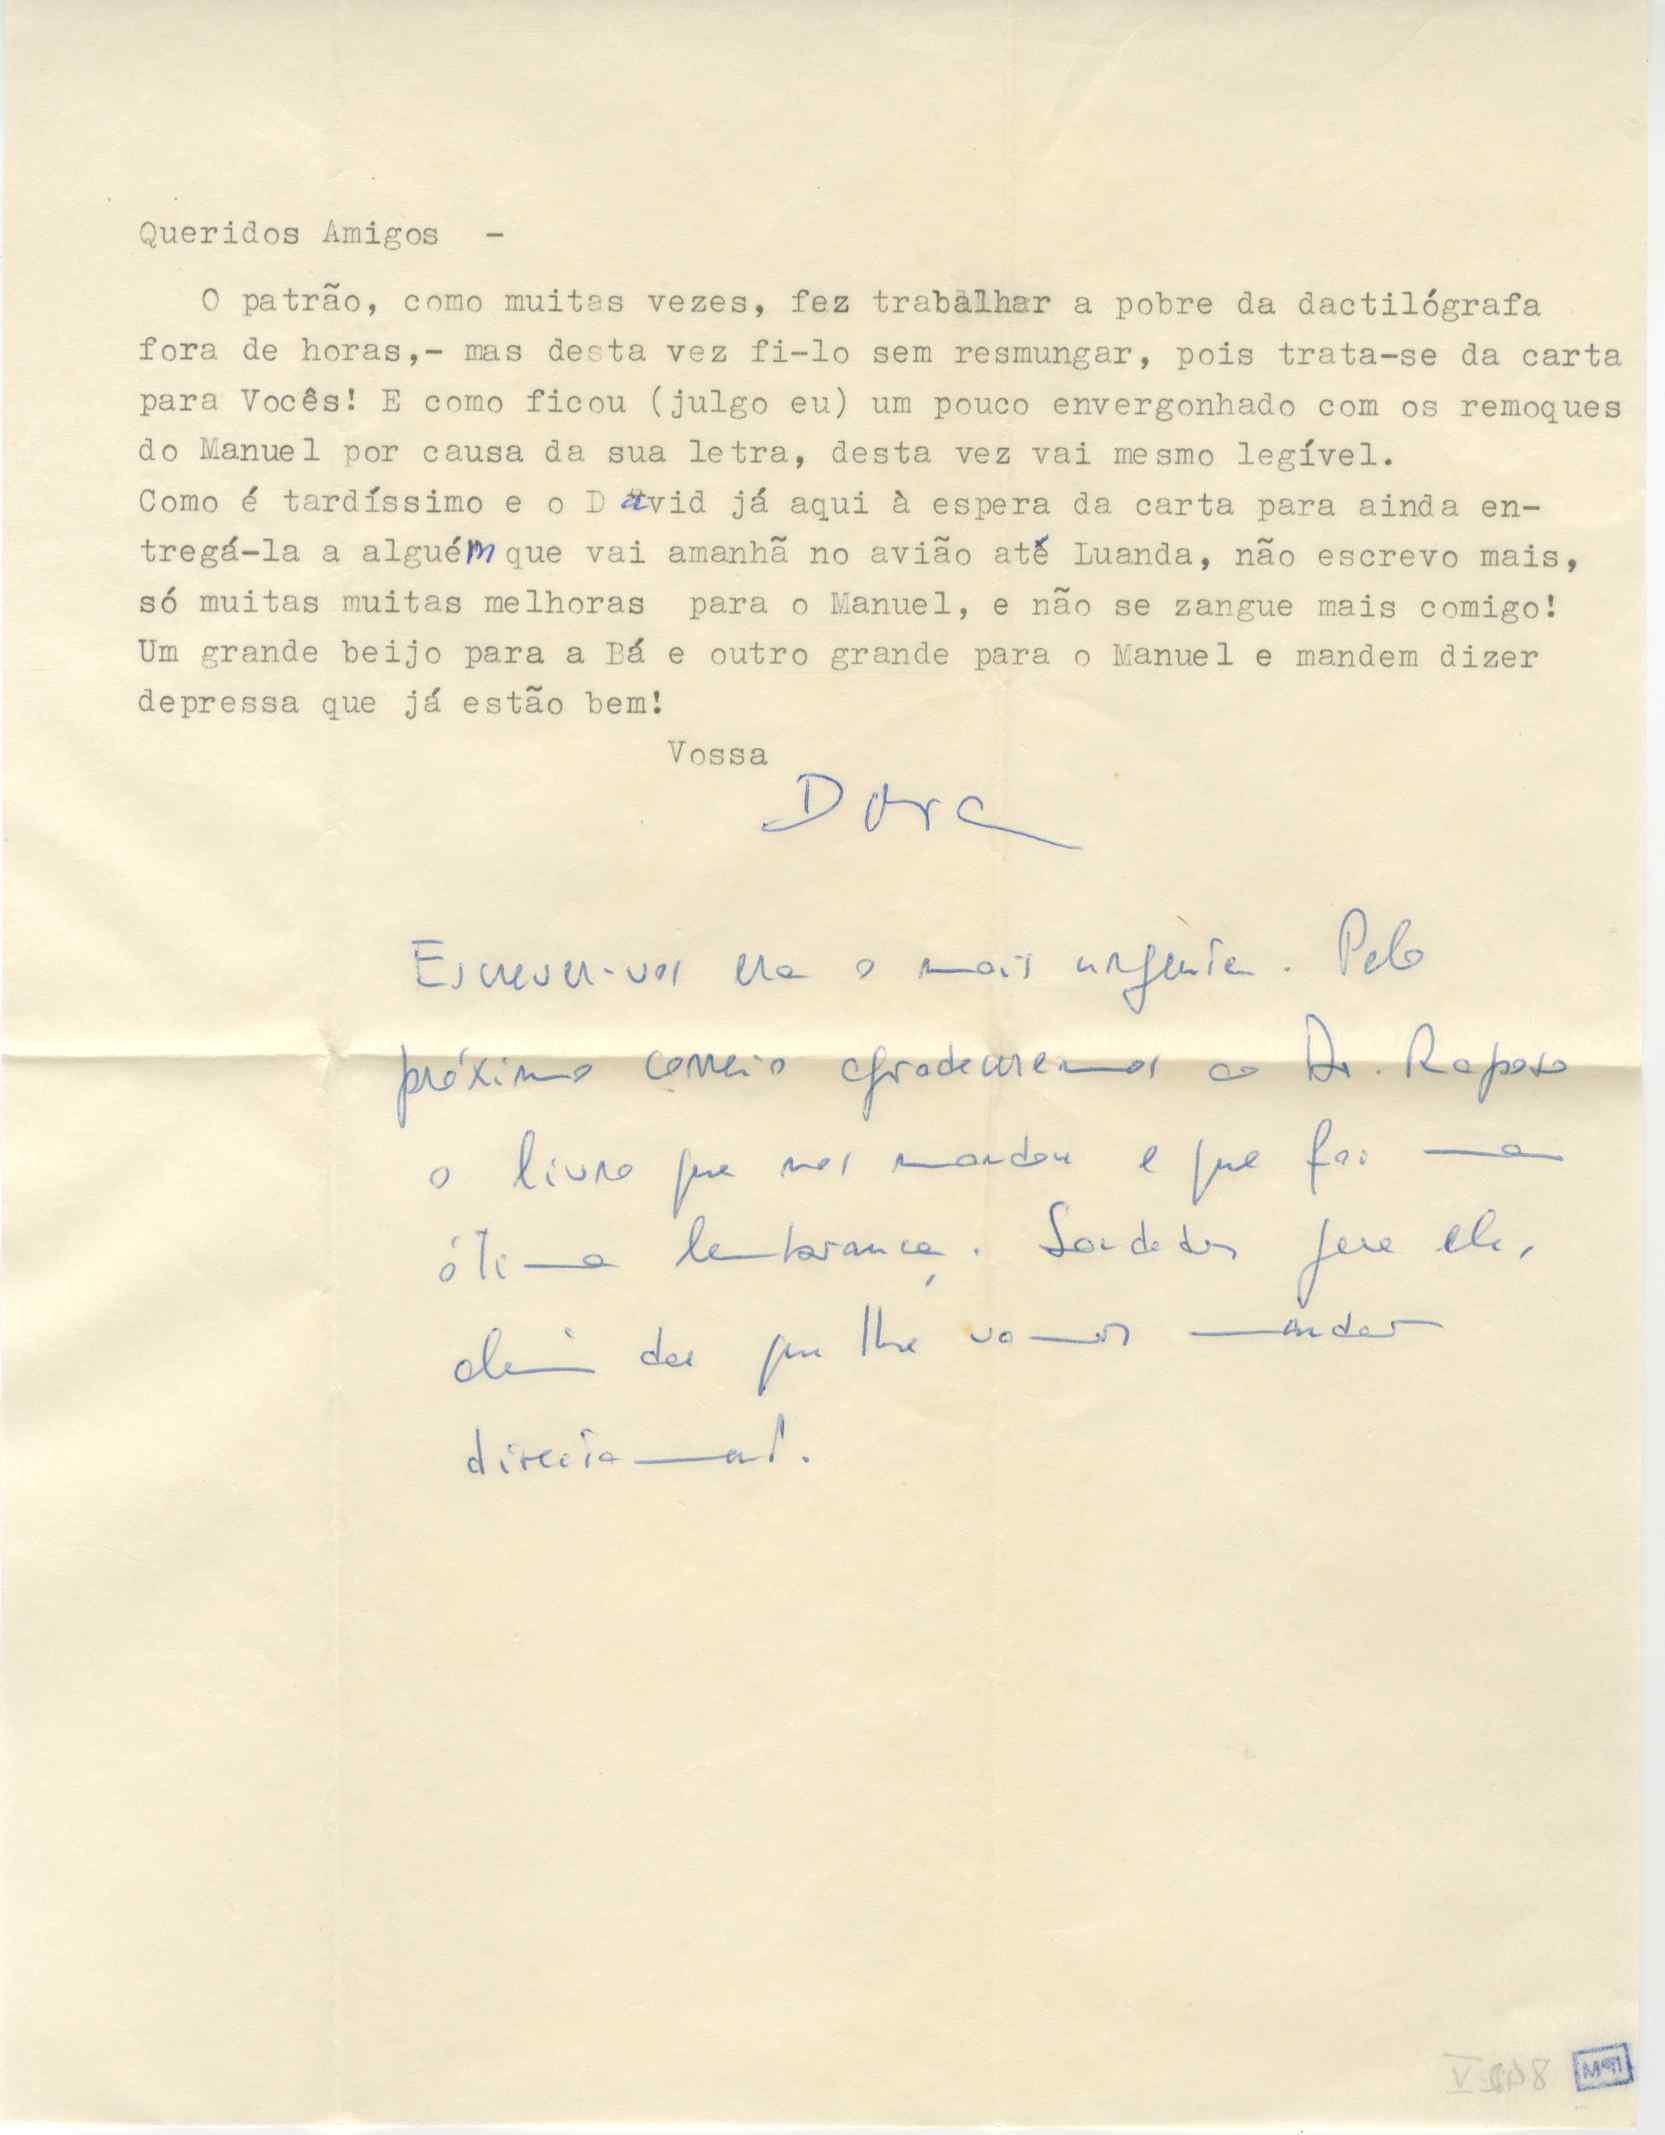 Queridos Amigos -
O patrão, como muitas vezes, fez trabalhar a pobre da dactilógrafa
fora de horas,- mas desta vez fi-lo sem resmungar, pois trata-se da carta
para Vocês! E como ficou (julgo eu) um pouco envergonhado com os remoques
do Manuel por causa da sua letra, desta vez vai mesmo legível.
Como é tardíssimo e o David já aqui à espera da carta para ainda en-
tregá-la a alguém que vai amanhã no avião até Luanda, não escrevo mais,
só muitas muitas melhoras para o Manuel, e não se zangue mais comigo!
Um grande beijo para a Bá e outro grande para o Manuel e mandem dizer
depressa que já estão bem!
Vossa
Dora
Escrever-vos era o mais urgente. Pelo
próximo correio agradeceremos ao Dr. Raposo
o livro que nos mandou e que foi uma
ótima lembrança. Saudades para ele,
além das que lhe vamos mandar
directamente.